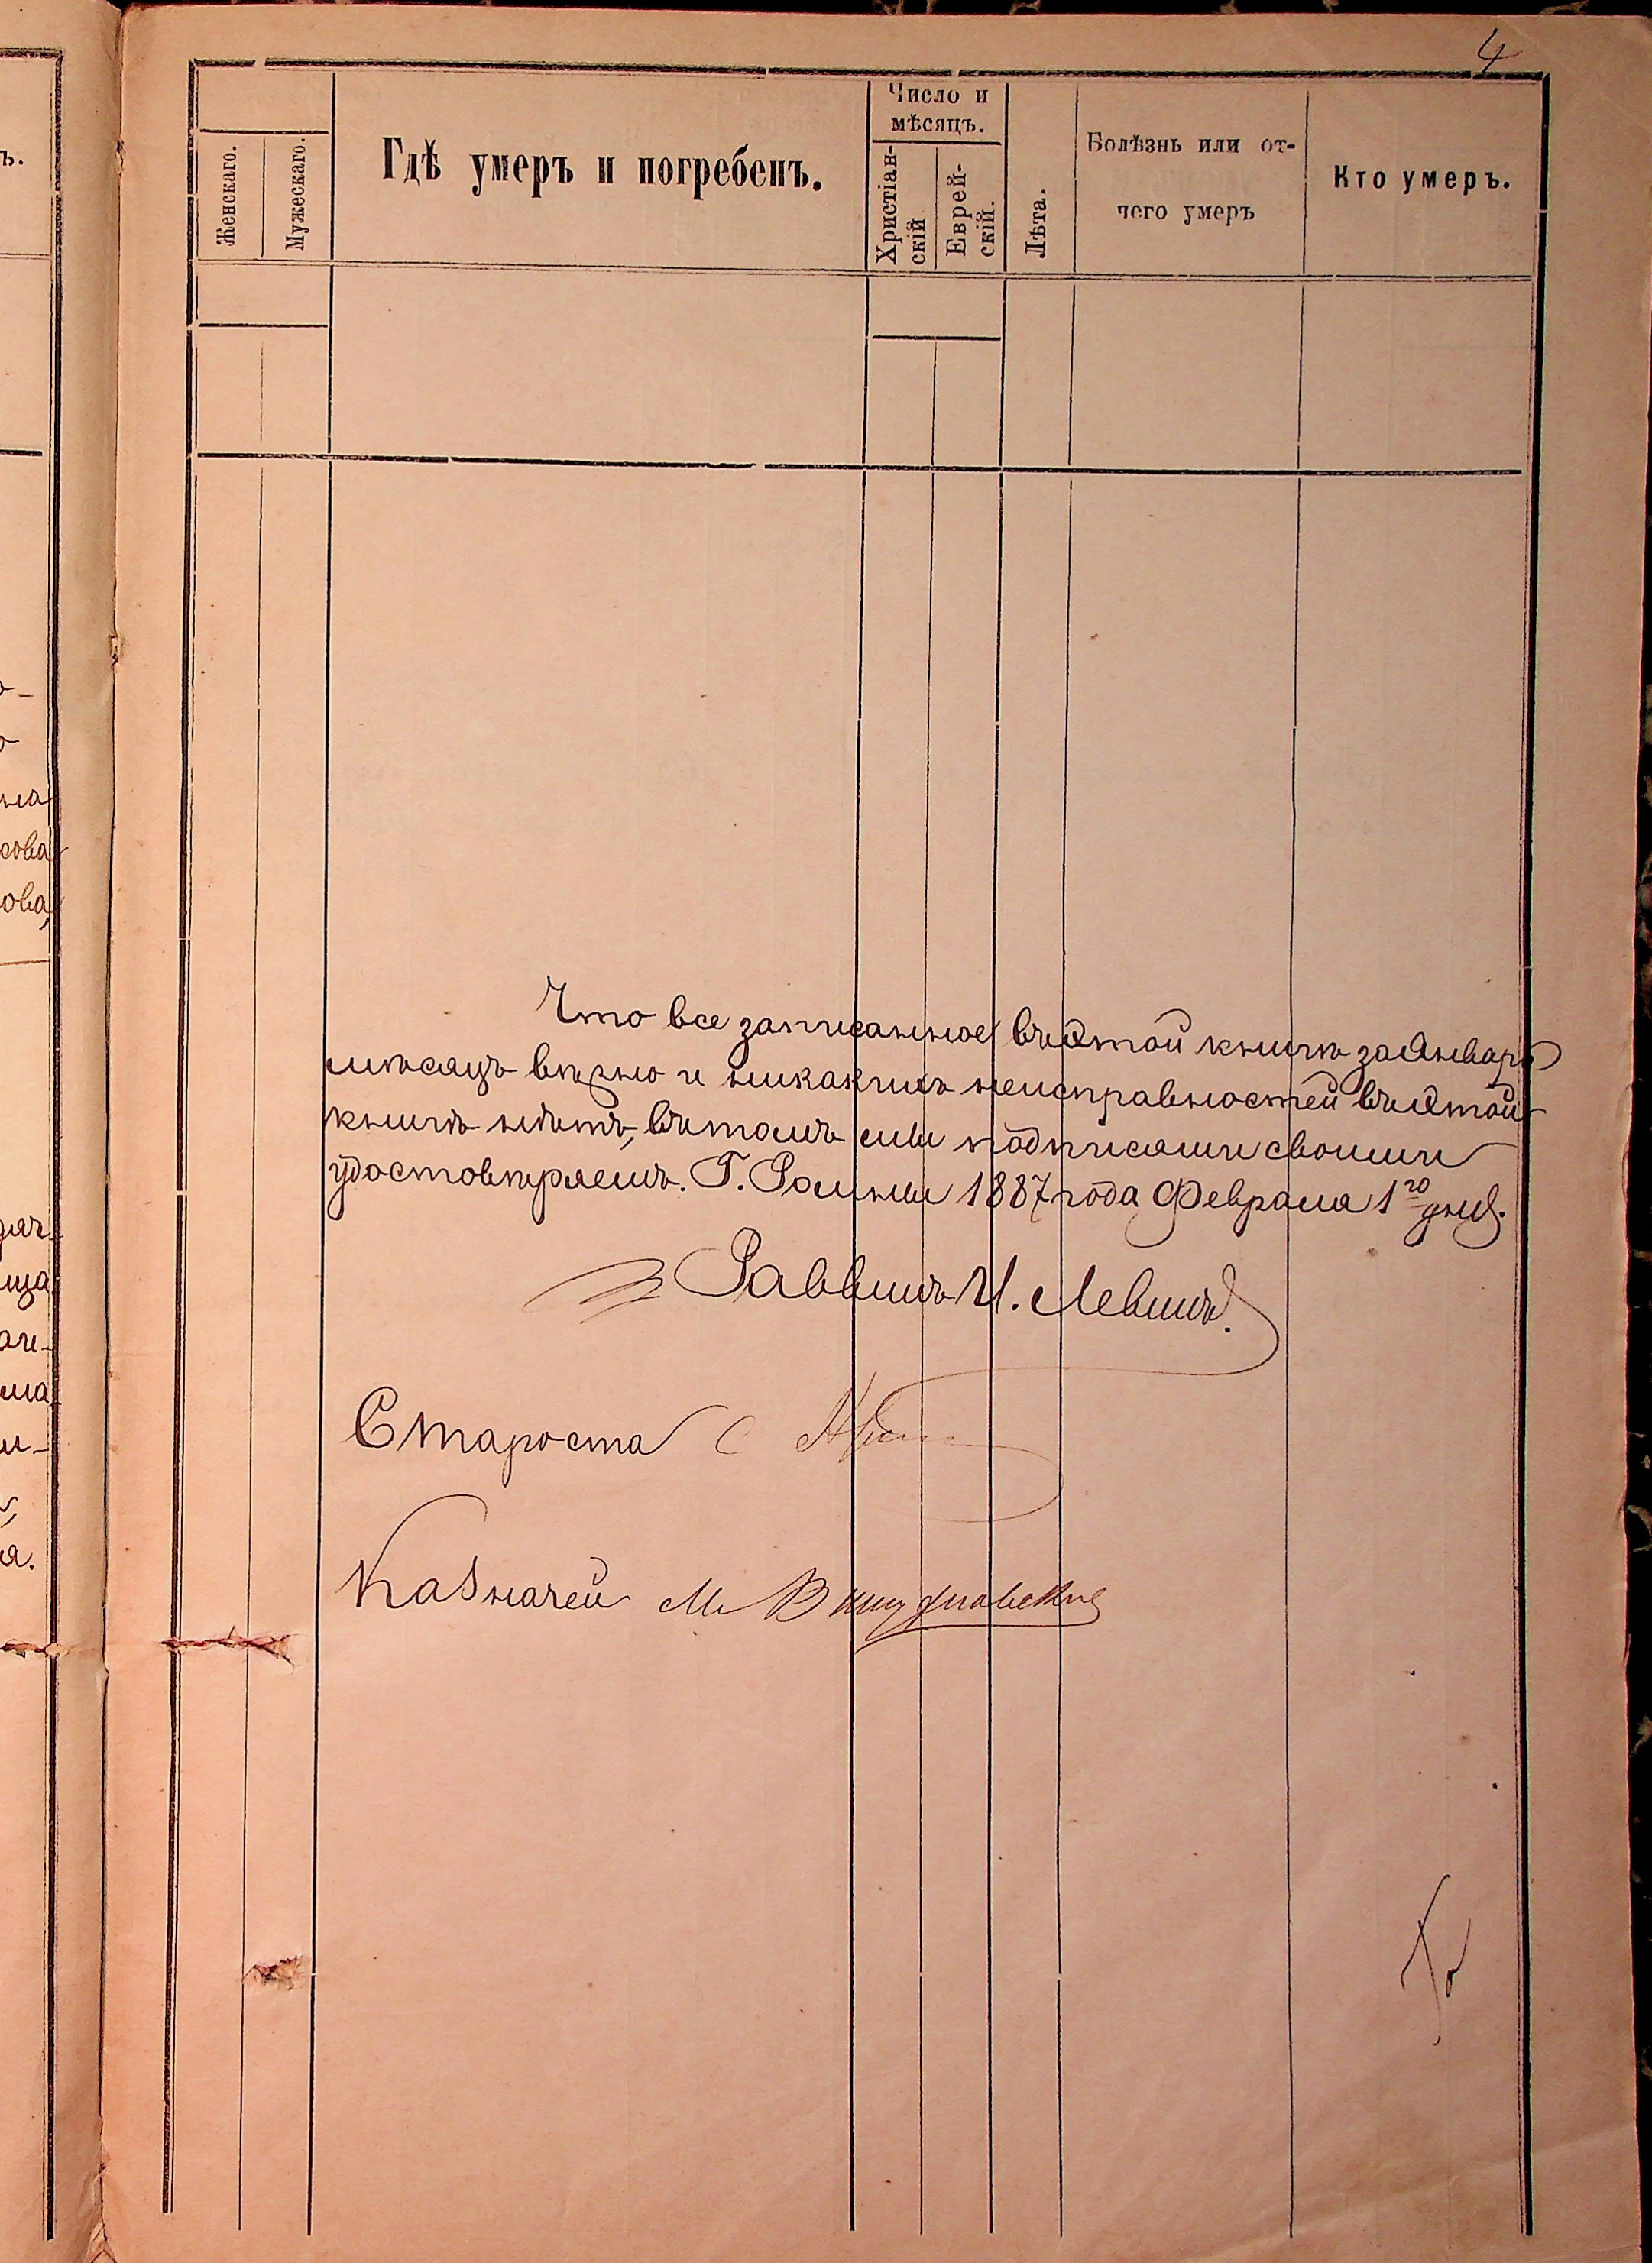 4
Женскаго.
Мужескаго.
Гдѣ умеръ и погребенъ.
Число и
мѣсяцъ.
Христіан-
скій
Еврей-
скій.
Лѣта.
Болѣзнь или от-
чего умеръ
Кто умеръ.
Что все записанное въ этой книгѣ за Январь
мѣсяцъ вѣрно и никакихъ неисправностей въ этой
книгѣ нѣтъ, въ томъ мы подписями своими
удостовѣряемъ. Г. Ромны 1887 года Февраля 1го дня.
Раввинъ И. Левинъ.
Староста
Казначей М